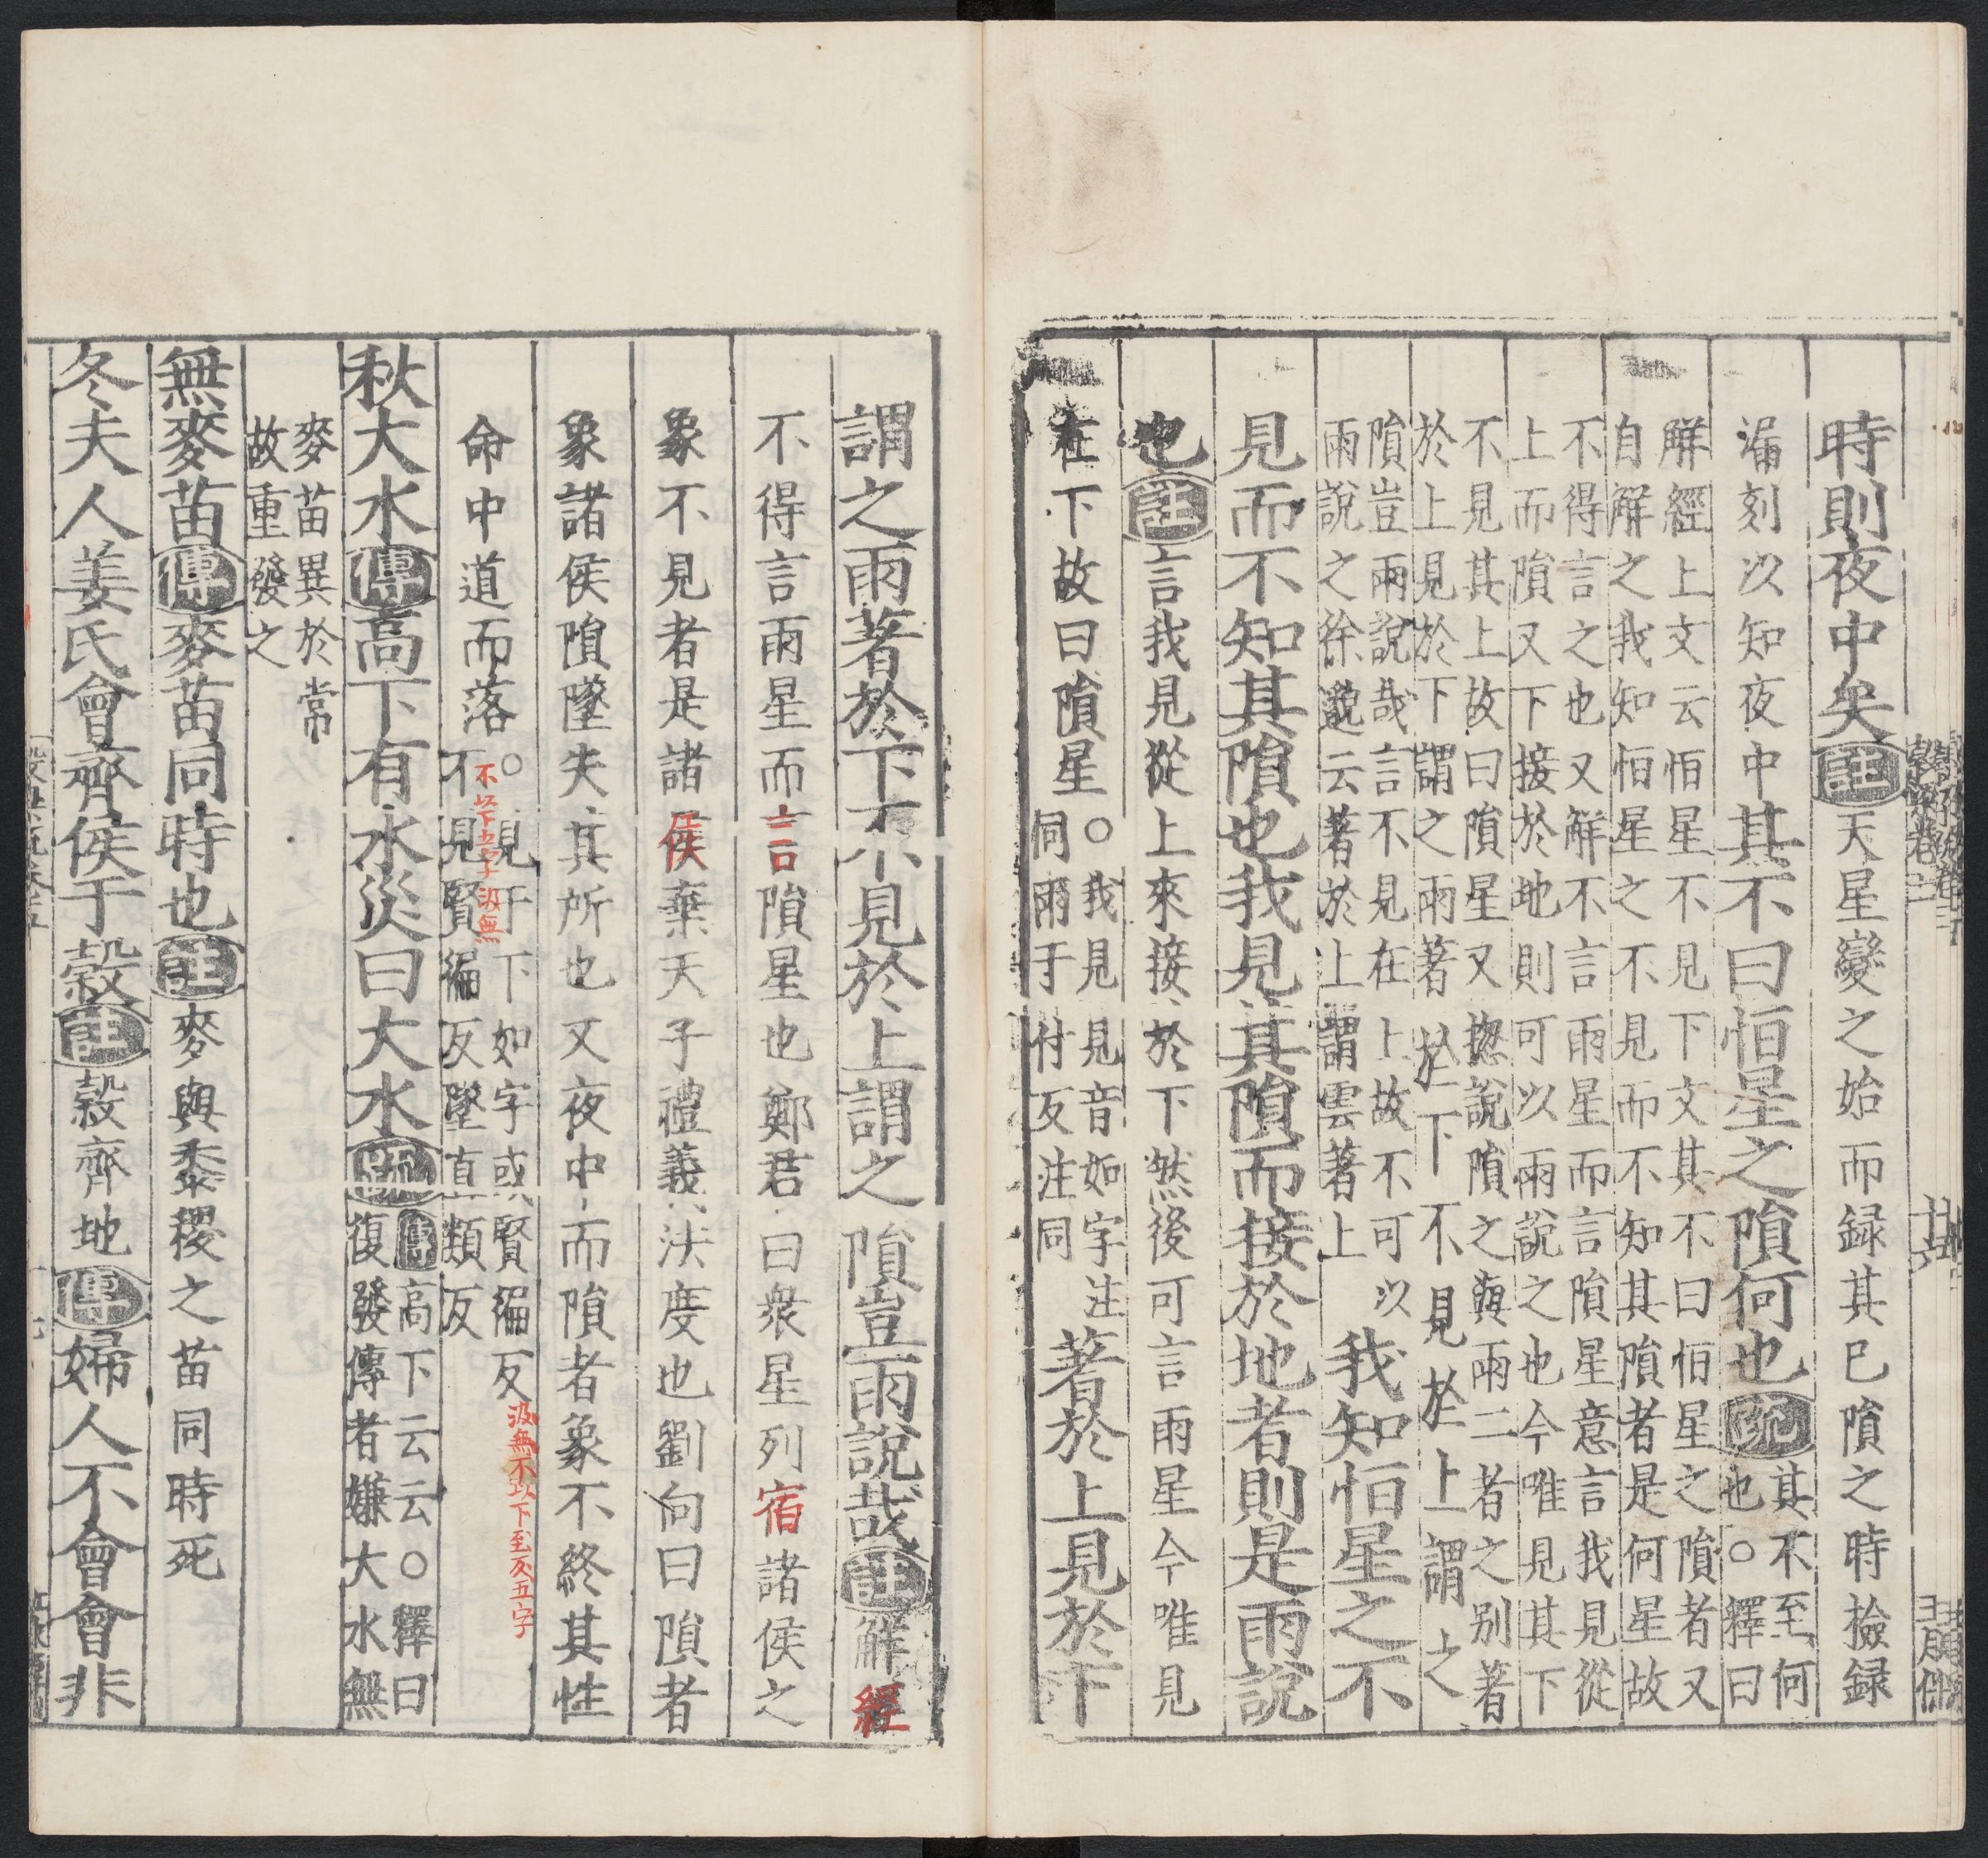 時則夜中矣註天星變之始而録其已隕之時撿録
漏刻以知夜中其不曰恒星之隕何也疏其不至何
也○釋曰
解經上文云恒星不見下文其不曰恒星之隕者又
自解之我知恒星之不見而不知其隕者是何星故
不得言之也又解不言雨星而言隕星意言我見從
上而隕又下接於地則可以雨說之也今唯見其下
不見其上故曰隕星又揔說隕之與雨二者之别著
於上見於下謂之雨著於下不見於上謂之
隕豈雨說哉言不見在上故不可以
雨說之徐邈云著於上謂雲著上
我知恒星之不
見而不知其隕也我見其隕而接於地者則是雨說
也註言我見從上來接於下然後可言雨星今唯見
在下故曰隕星○我見見音如字注
同雨于付反注同
著於上見於下
謂之雨著於下不見於上謂之隕豈雨說哉註解經
不得言雨星而言隕星也鄭君曰衆星列宿諸侯之
象不見者是諸侯棄天子禮義法度也劉向曰隕者
象諸侯隕墜失其所也又夜中而隕者象不終其性
命中道而落○見于下如字或賢徧反
不見賢徧反墜直類反
不以下五字汲無
汲無不以下至反五字
秋大水傳高下有水災曰大水疏傳高下云云○釋曰
復發傳者嫌大水無
麥苗異於常
故重發之
無麥苗傳麥苗同時也註麥與黍稷之苗同時死
冬夫人姜氏會齊侯于穀註穀齊地傳婦人不會會非